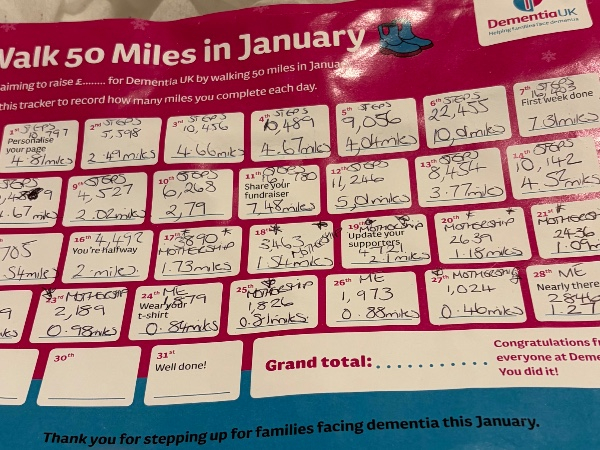 Walk 50 Miles in January
DementiaUK
Helping families face dementia
aiming to raise £........ for Dementia UK by walking 50 miles in Janua
this tracker to record how many miles you complete each day.
1st STEPS
10,797
Personalise
your page
4.81miles
2nd STEPS
5,598
2.49miles
3rd STEPS
10,456
4.66miles
4th STEPS
10,489
4.67miles
5th STEPS
9,056
4,04miles
6th STEPS
22,455
10.01miles
7th STEPS
First week done
miles
STEPS
.67miles
9th STEPS
4,527
2.02miles
10th STEPS
6,268
2,79
11th STEPS
780
Share your
fundraiser
7.48miles
12th STEPS
11,246
5.01miles
13th STEPS
8,454
3.77miles
14th STEPS
10,142
4.52miles
705
.54miles
16th 4,492
You're halfway
2.miles.
17th *
3890 *
MOTHERSHIP
1.73miles
18th *
3463
MOTHERSHIP
1.54miles
19th
MOTHERSHIP
Update your
supporters
4,721
2.1miles
20th *
MOTHERSHIP
2639
1.18miles
21st *
MOTHERSHIP
2436
1.09m
9
23rd MOTHERSHIP
2,189
0.98miles
24th ME
1,879
Wear your
t-shirt
0.84miles
25th
MOTHERSHIP
1,826
0.81miles
26th ME
1,973
0.88miles
27th MOTHERSHIP
1,024
0.46miles
28th ME
Nearly there
2846
1.27
30th
31st
Well done!
Grand total: . . . . . . . . . . .
Congratulations f
everyone at Deme
You did it!
Thank you for stepping up for families facing dementia this January.